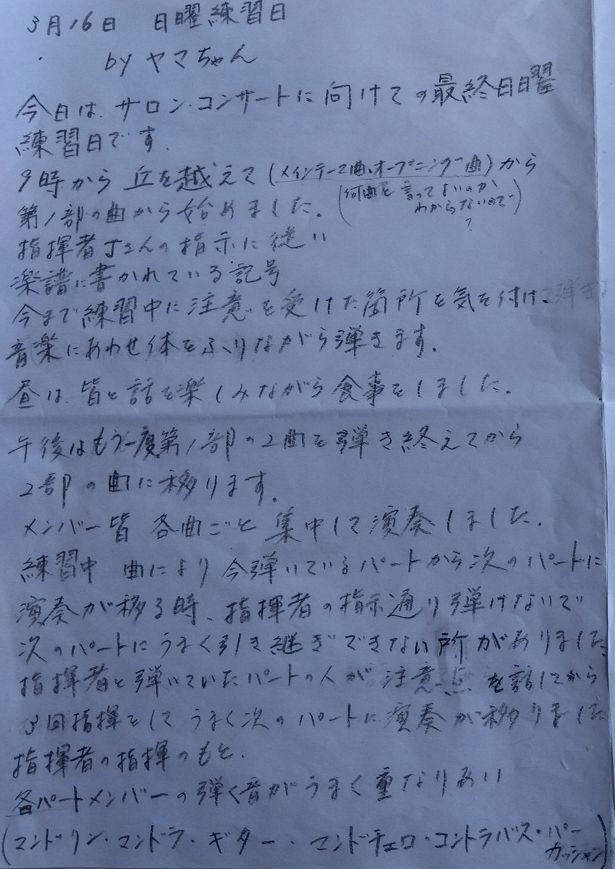 3月16日 日曜練習日
by ヤマちゃん
今日は、サロン・コンサートに向けての最終日曜
練習日です。
9時から 丘を越えて (メインテーマ曲、オープニング曲) から
(何曲と言ってよいのか
わからないので
?)
第1部の曲から始めました。
指揮者Jさんの指示に従い
楽譜に書かれている記号
今まで練習中に注意を受けた箇所を気を付け、
音楽にあわせ体をふりながら弾きます。
昼は、皆と話を楽しみながら食事をしました。
午後はもう一度第1部の2曲を弾き終えてから
2部の曲に移ります。
メンバー皆 各曲ごと 集中して演奏しました。
練習中 曲により 今弾いているパートから次のパートに
演奏が移る時、指揮者の指示通り弾けないで
次のパートにうまく引き継ぎできない所がありました
指揮者と弾いていたパートの人が注意点を話してから
3回指揮をして うまく次のパートに演奏が移りました
指揮者の指揮のもと、
各パートメンバーの弾く音がうまく重なりあい
(マンドリン・マンドラ・ギター・マンドチェロ・コントラバス・パー
カッション)